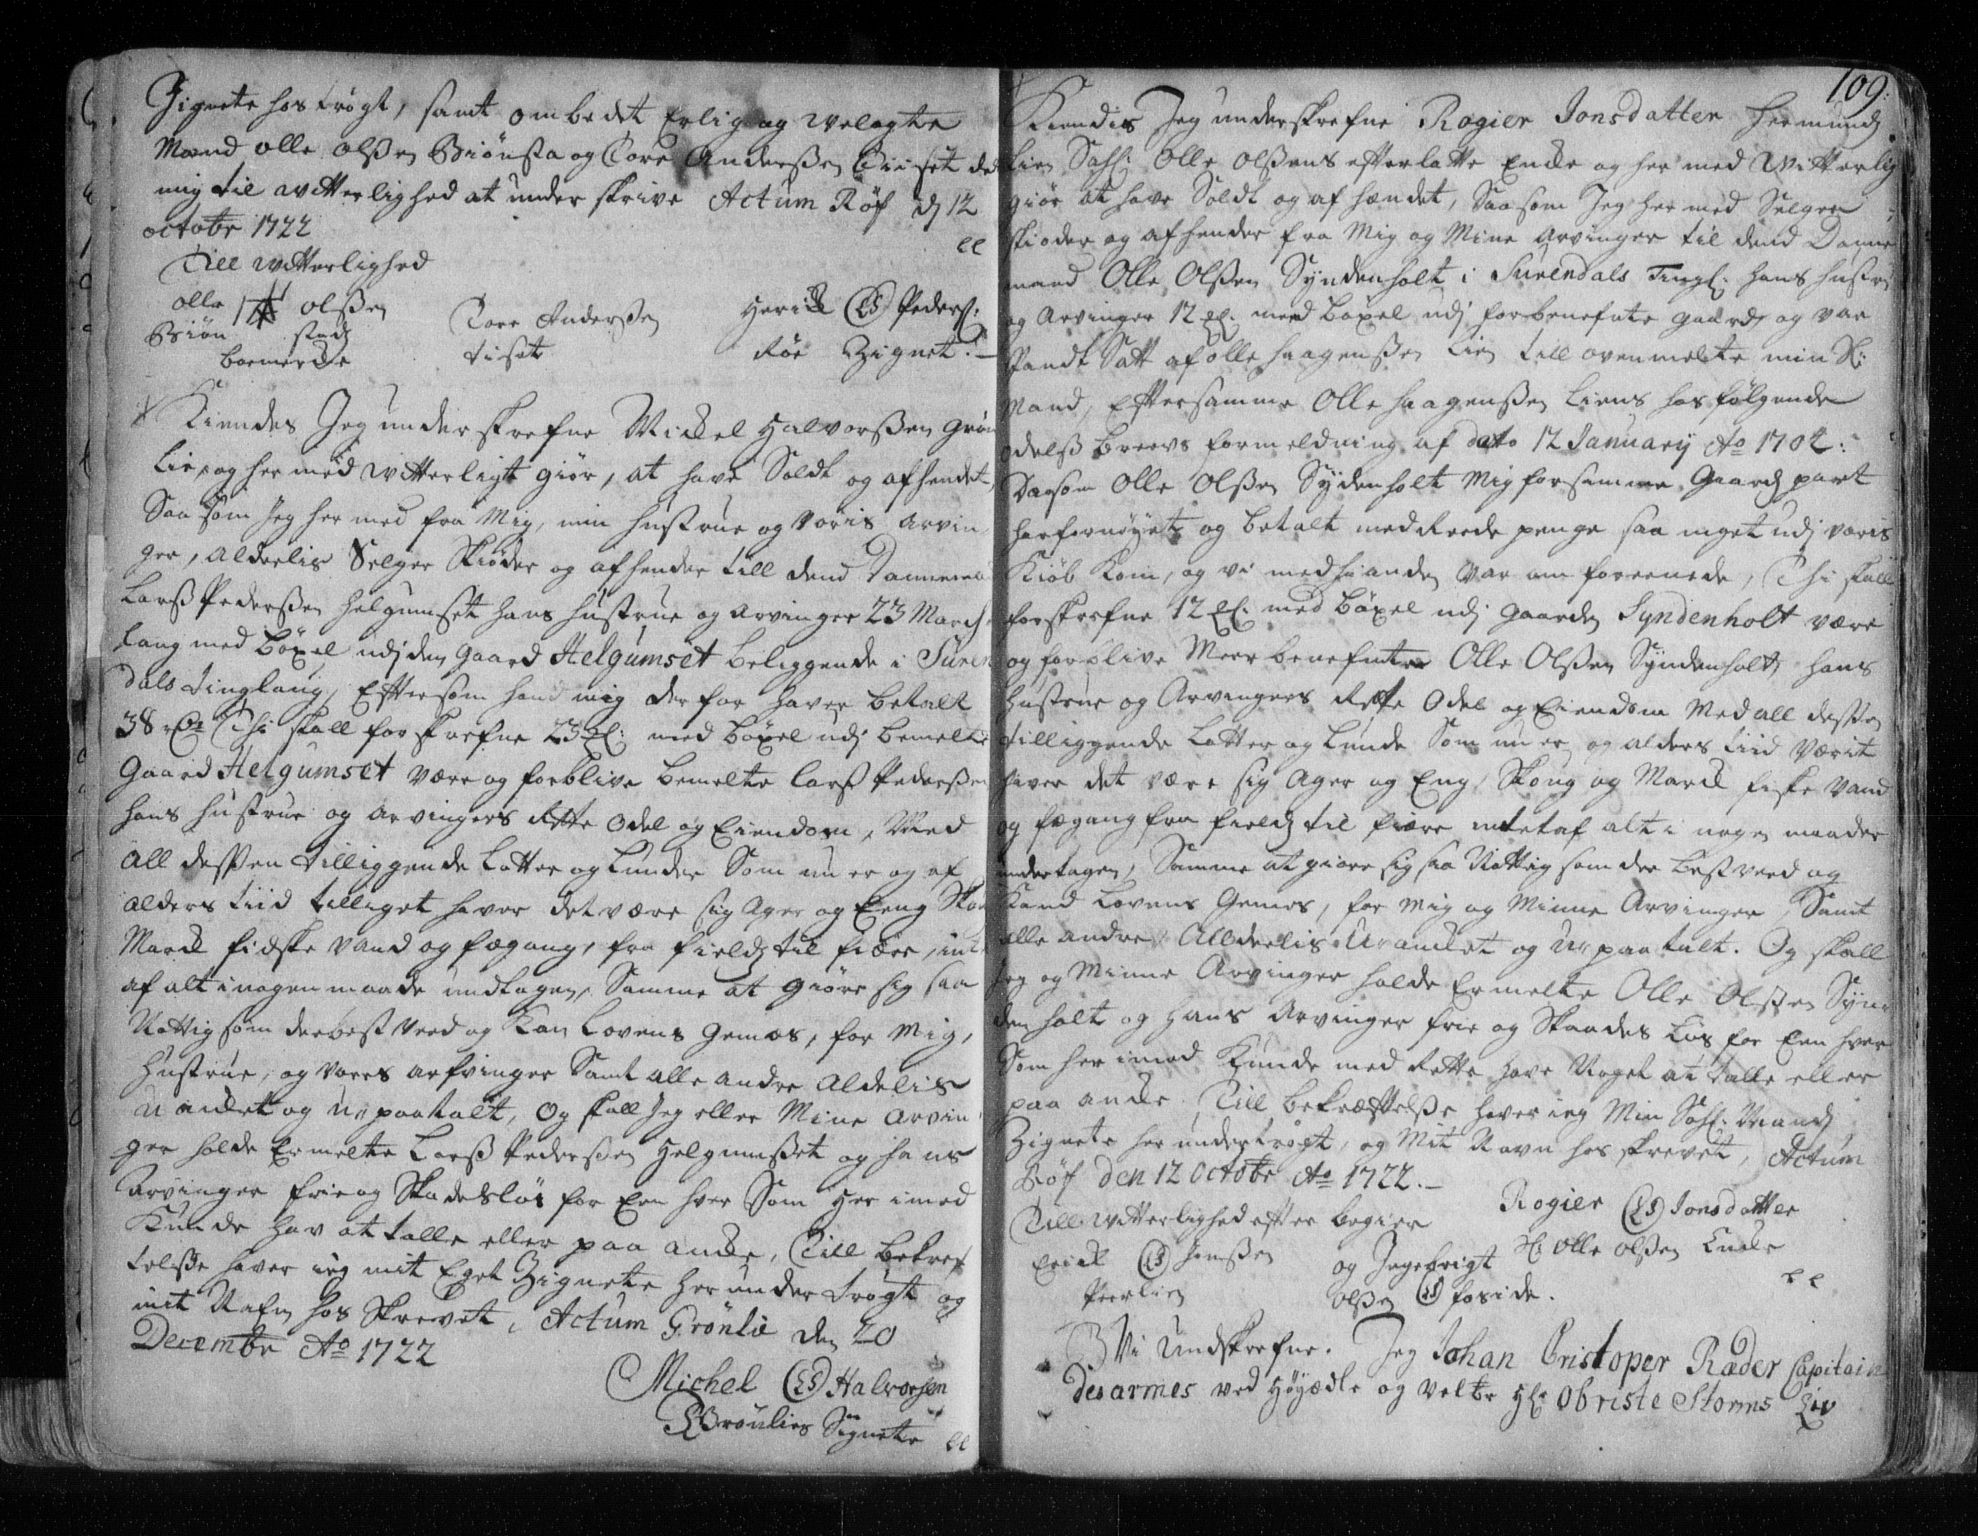 Zignete hos trögt, samt ombedet Erlig og Welagte
Mand olle olßen Biönsta og Tore Anderßen Tiiset med
mig til witterlighed at under skrive Actum Röf dj 12
octobr 1722
Till witterlighed
olle olßen
Biön stad
boemerke
Tore Anderßen
tiset
Henrik LS Pederß:
Röe Zignet.
Kiendes Jeg underskrefne Mickel Halvorßen Grön
lie, og her med witterligt giör, at have Soldt og afhendet,
Saa som Jeg her med fra Mig, min hustrue og voris arvin
ger, alderlis Selger Skiöder og afhender till dend Dannema
Larß Pederßen Helgumset hans hustrue og arvinger 23 March
lang med böxel udj den gaard Helgumset beliggende i Suren
dals tinglaug, Eftersom hand mig derfor haver betalt
38 rdr Thi skall forskrefne 23 ml: med böxel udj bemelte
Gaard Helgumset være og forblive bemelte larß Pederßen
hans hustrue og arvingers Rette odel og Eiendom, Med
All desßen tilliggende Lotter og Lunder Som nu er og af
alders tiid tilliget haver det være sig Ager og Eeng Skou
Mark fidske vand og fægang, fra field til fiære, intet
af alt i nogen maade undtagen, Samme at giöre sig saa
Nottig som der best veed og Kan Lovens gemæs, for Mig,
Hustrue, og vores arfvinger Samt alle andre Aldelis
u anket og u-paatalt, og skall Jeg eller Mine arvin
ger holde Ermelte Larß Pederßen Helgumßet og hans
Arvinger frie og Skadeslös for Een hver Som her imod
Kunde hav at talle eller paa anke, Till bekref
telße haver ieg mit Eget Zignete her under trögt og
mit Nafn hos Skrevet, Actum Grönlie den 20
Decembr Ao 1722
Michel LS Halvorsen
Grönlies Signete
109.
Kiendis Jeg underskrefne Rogier Jonsdatter Hermunds
lien Sahl: Olle olßens efterlatte Enke og her med Witterlig
giör at have Soldt og af hændet, Saa som Jeg her med Selger
skiöder og afhender fra Mig og Mine Arvinger til dend Danne
mand Olle Olßen Syndenholt i Surendals Tingl: hans hustru
og Arvinger 12 ml: med böxel udj forbenefnte gaard og var
Pandt Satt af olle haagenßen Lien till ovenmelte min Sl:
Mand, Eftersamme Olle haagenßen Liens hos fölgende
odelß breevs formeldning af dato 12 January Ao 1702:
Da som Olle Olßen Sydenholt Mig for samme Gaards part
har fornöyet og betalt med Reede penge saa meget udj voris
Kiöb Kom, og vi med hianden var om foreenede, Thi skall
forskrefne 12 ml: med böxel udj gaarden Syndenholt være
og forblive Meer benefnte Olle Olßen Syndenholt hans
Hustrue og Arvingers Rette Odel og Eiendom Med all desßen
tilliggende Lotter og Lunde Som nu er og alders tiid værit
haver det være sig Ager og Eng, Skoug og Mark fiske vand
og fægang fra field til fiære intet af alt i nogen maader
undertagen, Samme at giöre sig saa Nottig som der best veed og
Kand Lovens Gemes, for mig og Minne Arvinger, Samt
alle andre Alldeelis Uranket og ur paatalt. Og skall
Jeg og Minne Arvinger holde Ermelte Olle Olßen Syn
den holt og hans Arvinger frie og Skaades Lös for Een hver
Som her imod Kunde med Rette have Noget at talle eller
paa anke Till bekræftelße haver ieg Min Sahl: Mands
Zignete her undertrögt, og Mit Navn hos skrevet, Actum
Röf den 12 Octobr Ao 1722.
Till witterlighed efter begier
Erick LS Jenßen
Peerlien
og Ingebrigt
olßen LS foside.
Rogier LS Jonsdatter
Sl: olle olßen Enke
Vi Undskrefne. Jeg Johan Cristoper Ræder Capitain
des armes ved Höyædle og velbr Hl: Obriste Storms Liv